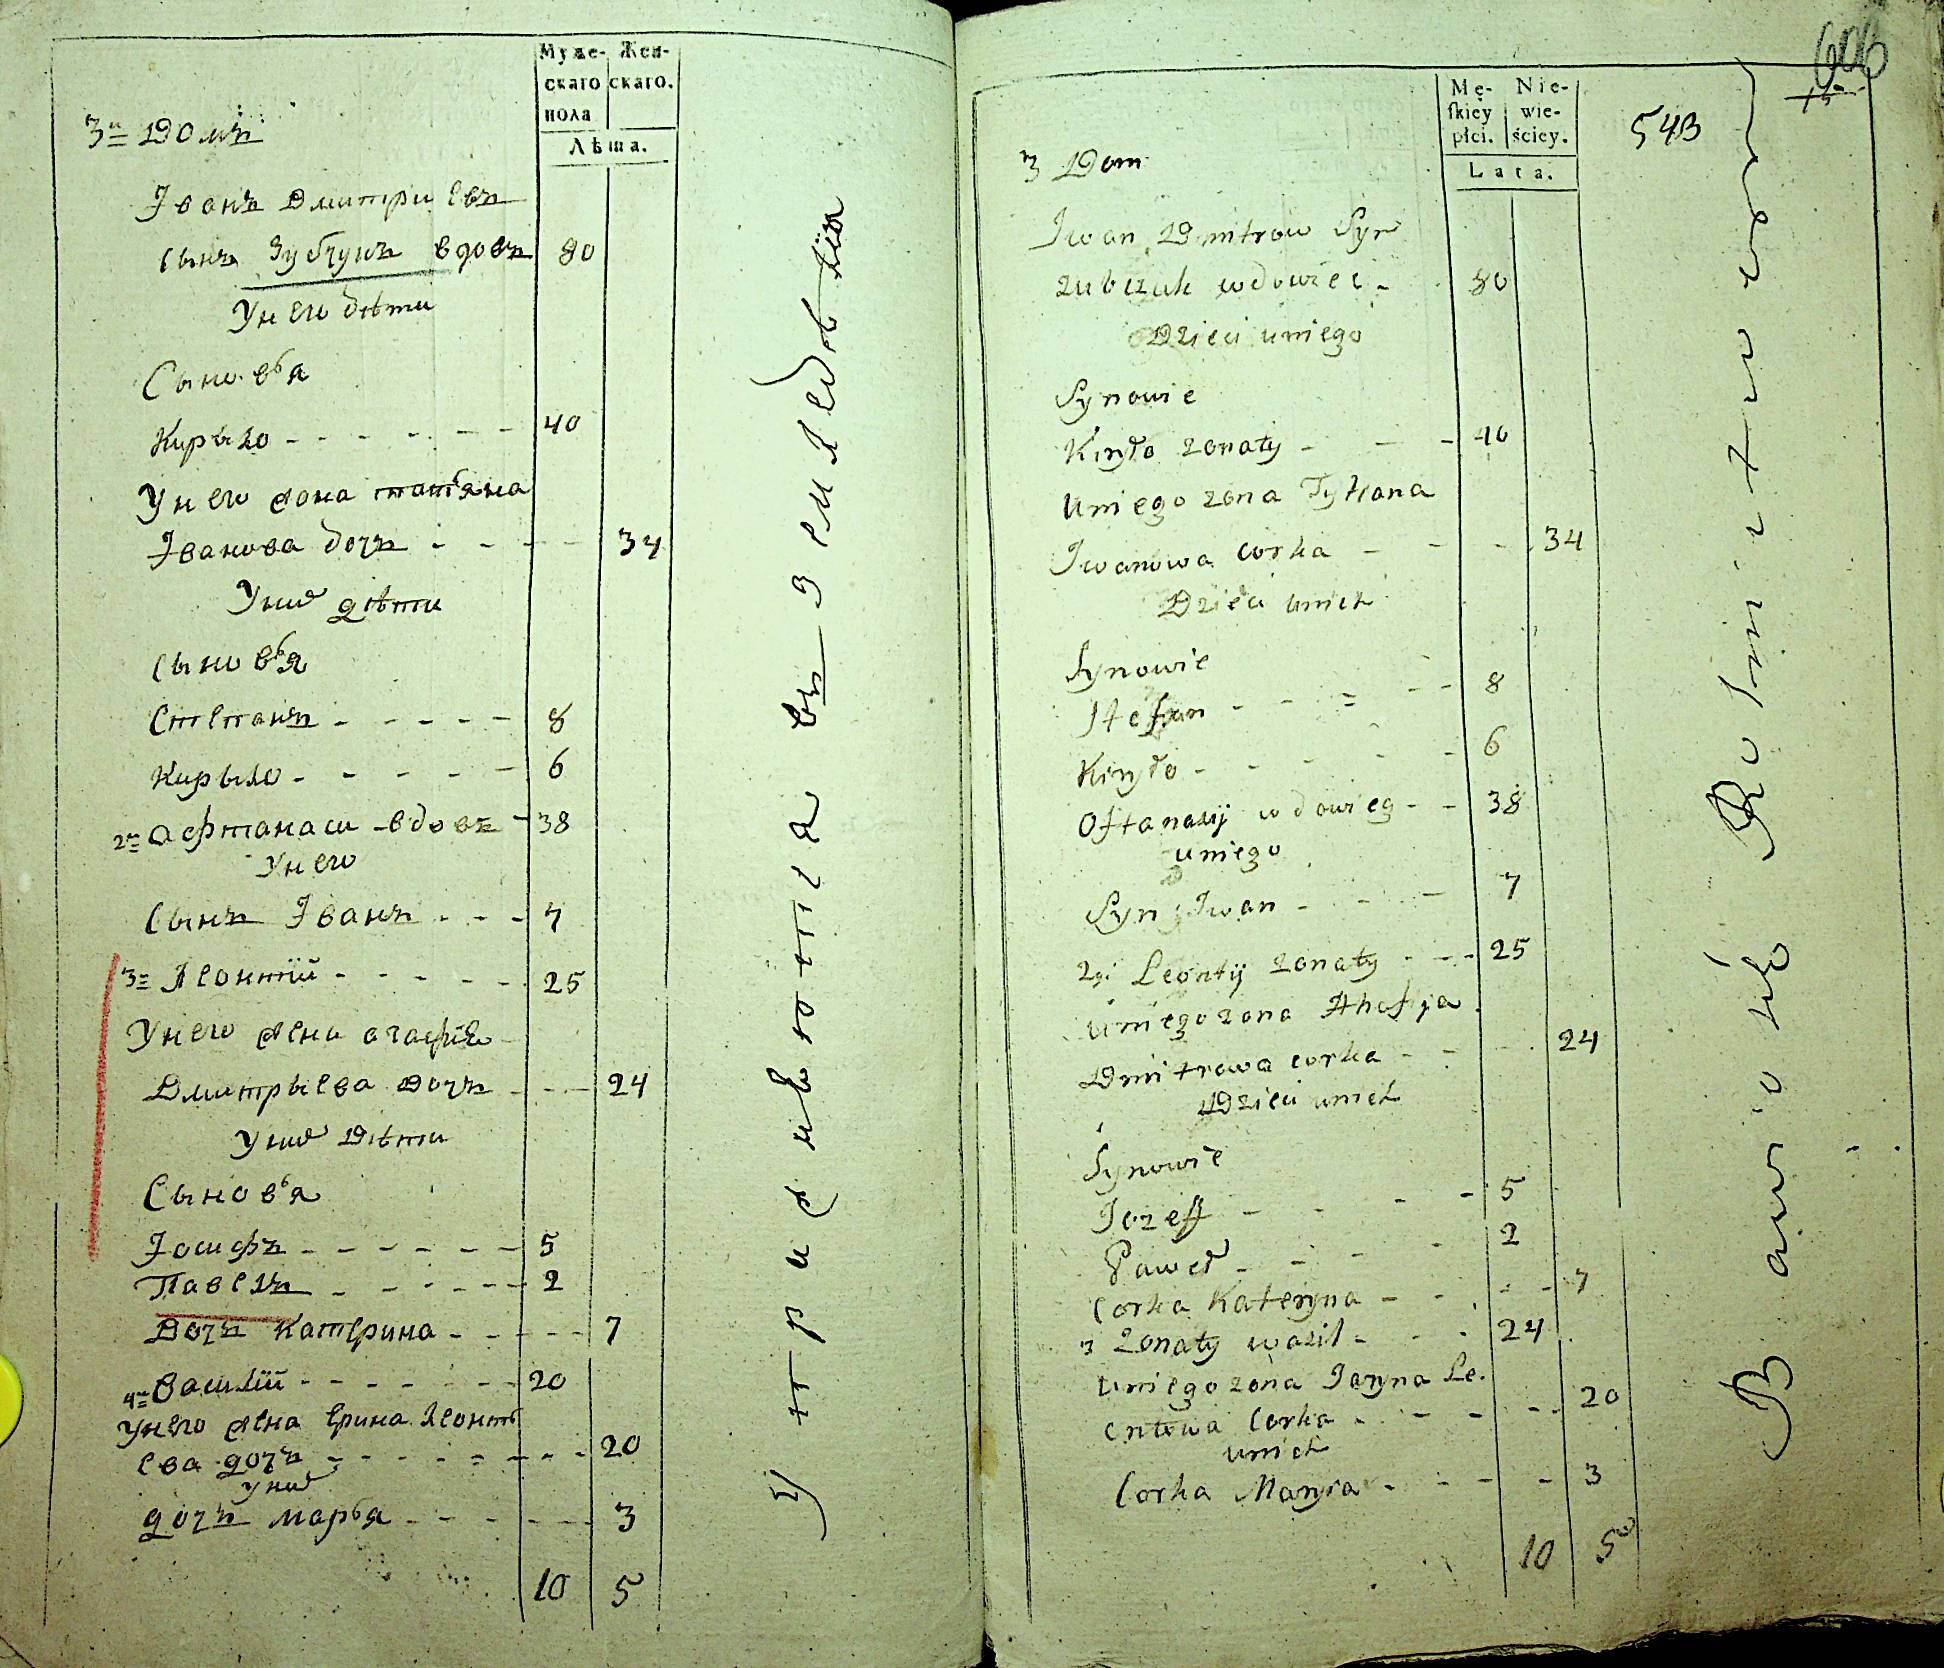 Муже- Жен-
скаго скаго.
пола
Лѣта.
3й Домъ
Іванъ Дмитриевъ
сынъ Зубчукъ вдовъ 80
У него дѣти
Сыновья
Кирыло - - - - - - 40
У него жона татьяна
Іванова дочъ - - - - 34
У них дѣти
сыновья
Степанъ - - - - - 8
Кирыло - - - - - 6
2й афтанаси - вдовъ - 38
У него
сынъ Іванъ - - - 7
3й Леонтій - - - - - 25
У него жена агафія
Дмитрьева Дочъ - - - 24
У них Дѣти
Сыновья
Іосифъ - - - - - - 5
Павелъ - - - - - - 2
Дочъ Катерина - - - - - 7
4й Василій - - - - - - - 20
У него жена Ірина Леонть
ева дочъ - - - - - - - - 20
У них
дочъ марья - - - - - - 3
10 5
упражняются въ земледѣлии
606
543
Mę- Nie-
skiey wie-
płci. ściey.
Lata.
3 Dom
Iwan Dmitrow Syn
Zubczuk wdowiec - 80
Dzieci uniego
Synowie
Kiryło zonaty - - - 40
Uniego zona Tytiana
Iwanowa corka - - - 34
Dzieci unich
Synowie
Stefan - - = - - 8
Kiryło - - - - - - 6
Oftanasij wdowieg - - 38
uniego
Syn Iwan - - - 7
2gi Leontij zonaty - - - 25
Uniego zona Ahafija
Dmitrowa corka - - - 24
Dzieci unich
Synowie
Iozeff - - - - 5
Paweł - - - - 2
Corka Kateryna - - - - 7
3 Zonaty wasil - - - 24
Uniego zona Jaryna Le.
ontewa Corka - - - - - 20
unich
Corka Maryia - - - - 3
10 5
Bawią się Rolnictwem